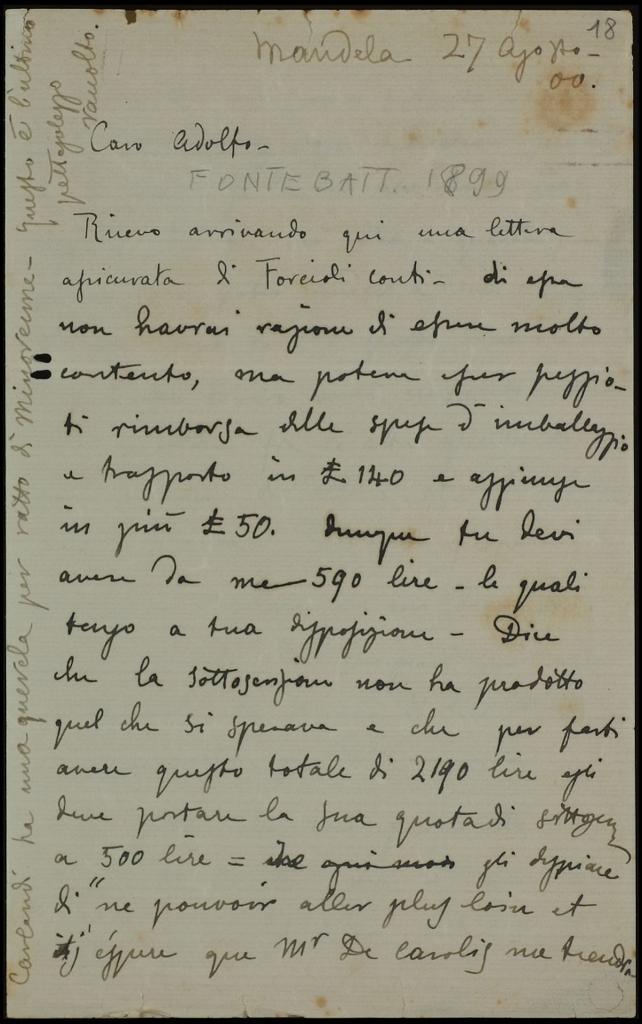 18
Mandela 27 Agosto -
00.
Caro Adolfo -
FONTE BATT. 1899
Ricevo arrivando qui una lettera
assicurata di Forcioli Conti - di essa
non havrai ragione di essere molto
contento, ma poteva esser peggio -
ti rimborsa delle spese d'imballaggio
e trasporto in £ 140 e aggiunge
in più £ 50. dunque tu devi
avere da me 590 lire - le quali
tengo a tua disposizione - Dice
che la sottoscrizione non ha prodotto
quel che si sperava e che per farti
avere questo totale di 2190 lire egli
deve portare la sua quota di sottoscriz
a 500 lire = gli dispiace
di "ne pouvoir aller plus loin et
j'éspere que Mr De Carolis me tiendra
Carlandi ha una querela per ratto di Minorenne - questo è l'ultimo
pettegolezzo
raccolto.